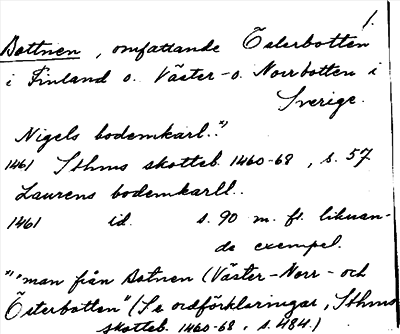 1.
Bottnen, omfattande Österbotten
i Finland o. Väster- o. Norrbotten i
Sverige.
Nigels bodemkarl..")
1461 Sthms skotteb. 1460-68, s. 57
Laurens bodemkarll..
1461 id. s. 90 m. fl. liknan-
de exempel.
")"man från Botnen (Väster-Norr- och
Österbotten" (Se ordförklaringar, Sthms
skotteb. 1460-68, s. 484.)